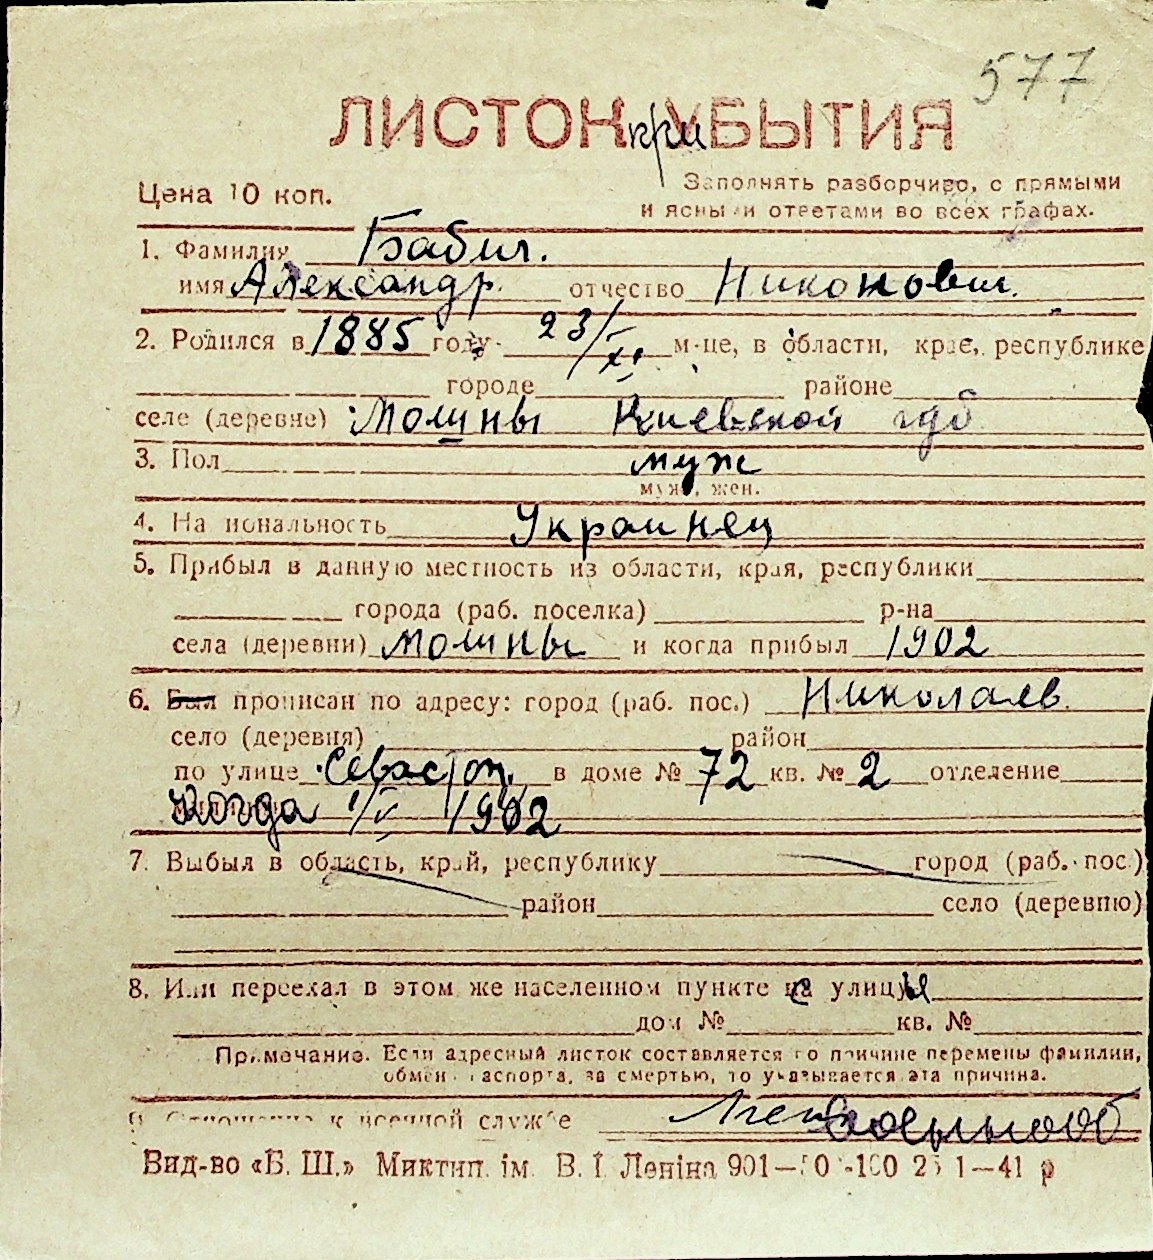 577
ЛИСТОК при УБЫТИЯ
Цена 10 коп.
Заполнять разборчиво, с прямыми
и ясными ответами во всех графах.
1. Фамилия Бабич.
имя Александр. отчество Никонович.
2. Родился в 1885 году 23/XI м-це, в области, крае, республике
городе районе
селе (деревне) Мошны Киевской губ
3. Пол муж
муж., жен.
4. Национальность Украинец
5. Прибыл в данную местность из области, края, республики
города (раб. поселка) р-на
села (деревни) Мошны и когда прибыл 1902
6. Был прописан по адресу: город (раб. пос.) Николаев.
село (деревня) район
по улице Севастоп. в доме № 72 кв. № 2 отделение
Когда 1/V 1902
7. Выбыл в область, край, республику город (раб. пос.)
район село (деревню)
8. Или переехал в этом же населенном пункте с улицы
дом № кв. №
Примечание. Если адресный листок составляется по причине перемены фамилии,
обмена паспорта, за смертью, то указывается эта причина.
9. Отношение к военной службе
Вид-во «Б. Ш.» Миктип. ім. В. І. Леніна 901—41 р